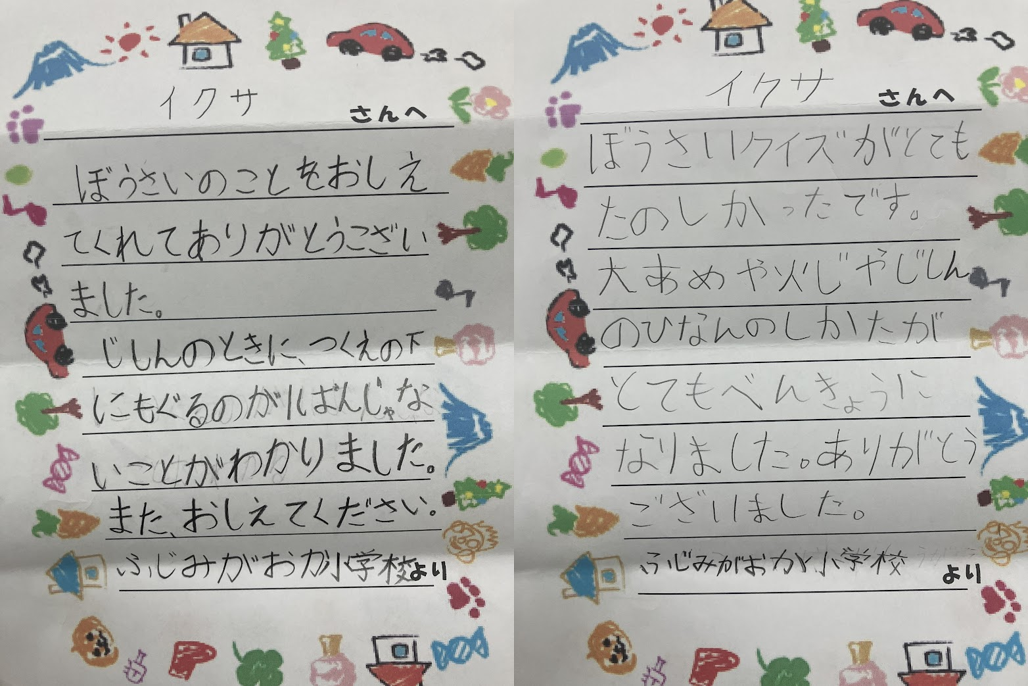 イクサ
さんへ
ぼうさいのことをおしえ
てくれてありがとうござい
ました。
じしんのときに、つくえの下
にもぐるのがいばんじゃな
いことがわかりました。
また、おしえてください。
ふじみがおか小学校より
イクサ
さんへ
ぼうさいクイズがとても
たのしかったです。
大あめや火じやじしん
のひなんのしかたが
とてもべんきょうに
なりました。ありがとう
ございました。
ふじみがおか小学校
より